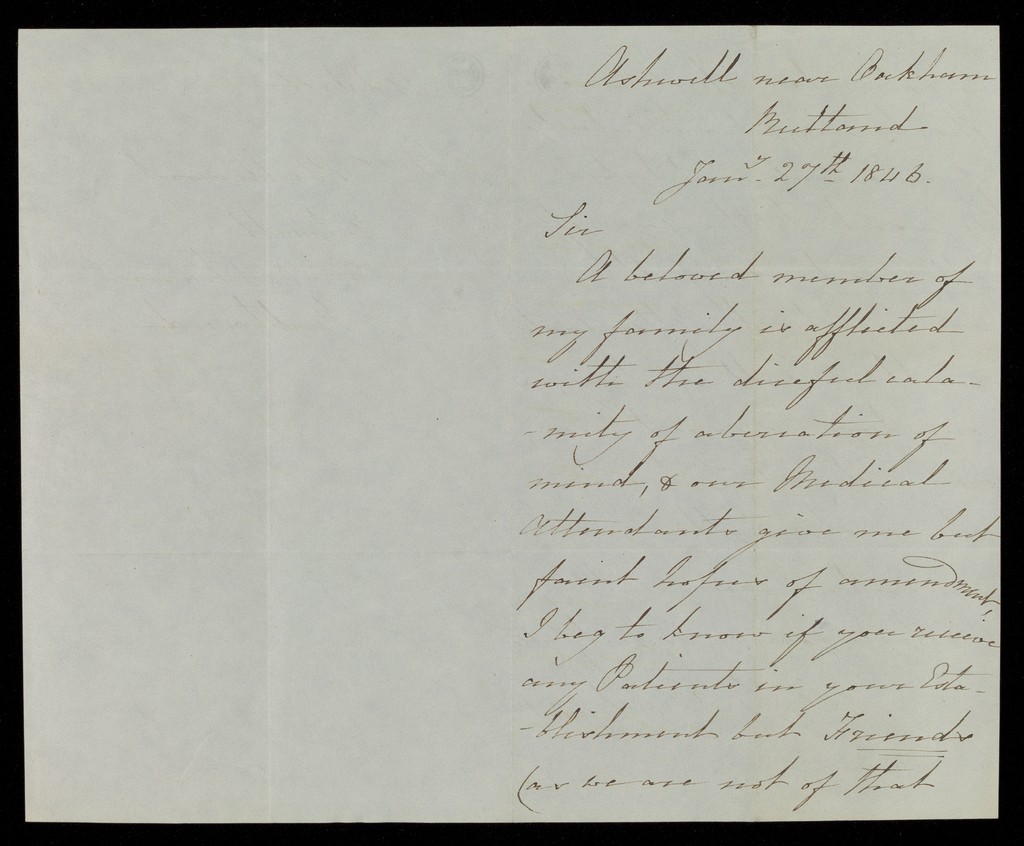 Ashwell near Oakham
Rutland
Jany. 27th 1846.
Sir
A beloved member of
my family is afflicted
with the direful cala-
-mity of aberration of
mind, & our Medical
Attendants give me but
faint hopes of amendment,
I beg to know if you receive
any Patients in your Esta-
-blishment but Friends
(as we are not of that